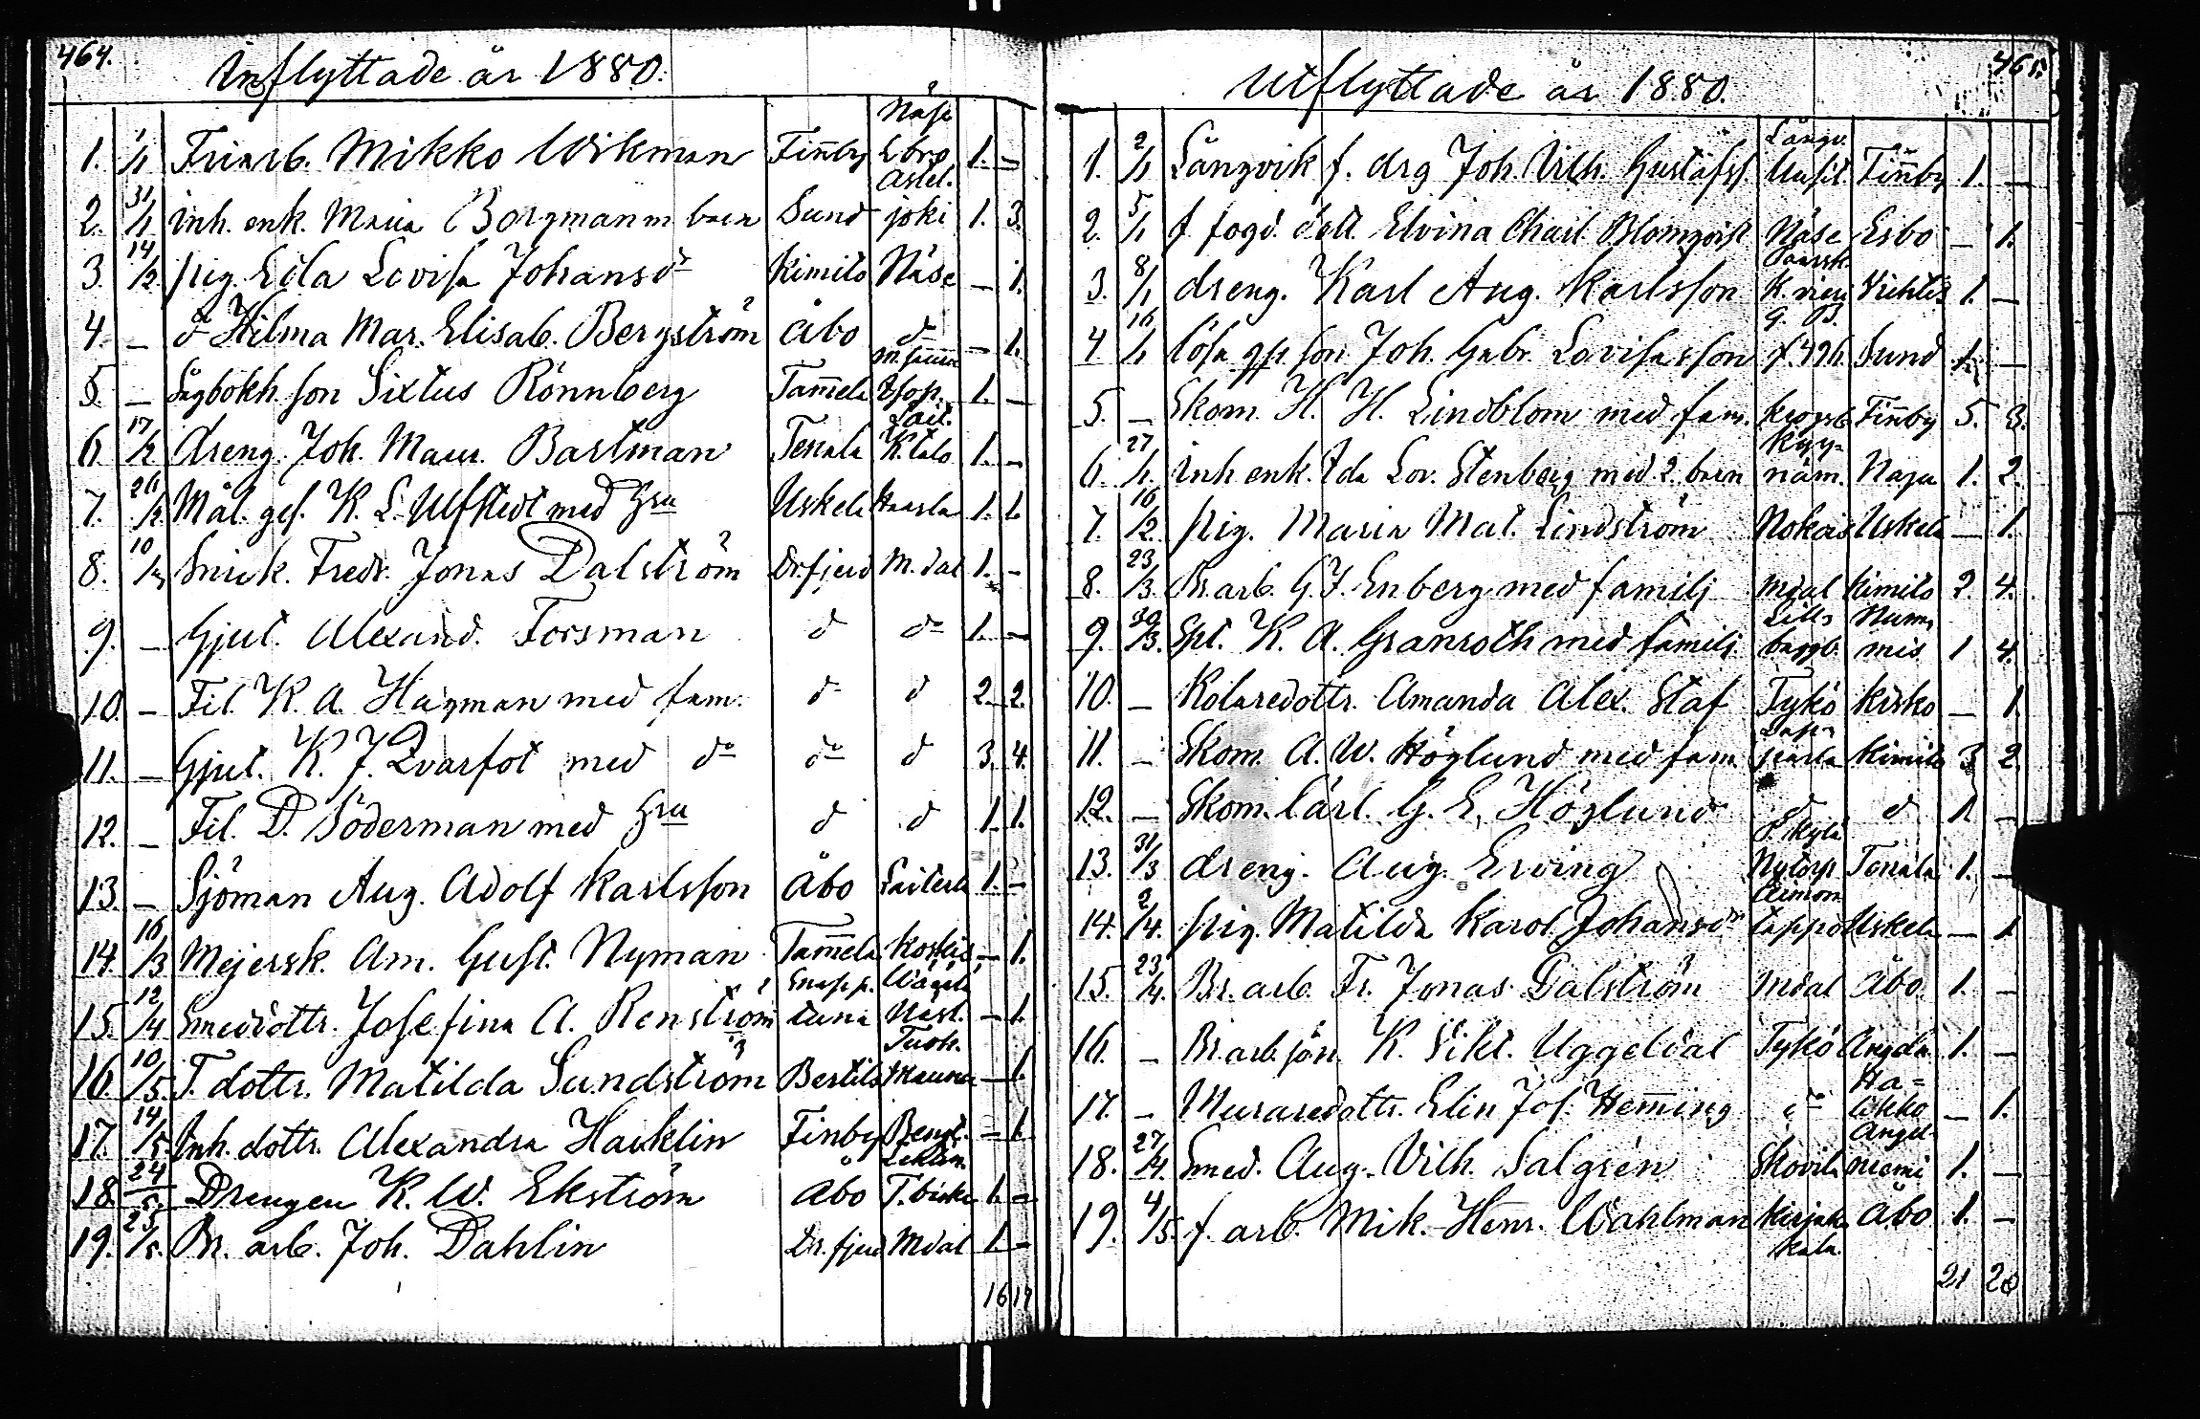 464.
Inflyttade år 1880.
1. 1/1 Friarb. Mikko Wikman Finby Näse 1. –
2. 31/1 Inh. enk. Maria Borgman m barn Sund joki 1. 3.
3. 14/2 pig. Eda Lovisa Johansdr Kimito Näse – 1.
4. – d Hilma Mar. Elisab. Bergström Åbo d – 1.
5. – Sågbokh. son Sixtus Rönnberg Tammela 1. –
6. 17/2 dreng. Joh. Maur. Bastman Tenala K.talo 1. –
7. 26/2 Mål. ges. K. L. Ulfstedt med hru Uskela 1. 1.
8. 10/3 Snick. Fredr. Jonas Dalström Dr.fjerd M.dal 1. –
9. – Gjut. Alexand. Forsman d do 1. –
10. – Fil. K. A. Hagman med fam. d d 2. 2.
11. – Gjut. K. J. Qvarfot med do do d 3. 4.
12. – Fil. D. Söderman med hru d d 1. 1.
13. – Sjöman Aug. Adolf Karlsson Åbo 1. –
14. 16/3 Mejersk. Am. Gust. Nyman Tammela Koskis – 1.
15. 12/4 Smeddottr. Josefina A. Renström – 1.
16. 10/5. T. dottr. Matilda Sundström Bertils – 1.
17. 14/5. Inh. dottr. Alexandra Harklin Finby – 1.
18. 24/5. Drengen K. W. Ekström Åbo 1. –
19. 25/5. Br. arb. Joh. Dahlin Dr. fjerd Mdal 1. –
16 17
465.
Utflyttade år 1880.
1. 2/1 Långvik f. drg Joh. Vilh. Gustafss. Finby 1. –
2. 5/1 f. fogd. dott. Elvina Charl. Blomqvist Näse Esbo – 1.
3. 8/1 dreng. Karl Aug. Karlsson Vichtis 1. –
4 16/1 lösa qp. son Joh. Gabr. Lovisasson Sund 1. –
5. – Skom. H. H. Lindblom med fam. Finby 5. 3.
6. 27/1. Inh enk. Ida Lov. Stenberg med 2. barn 1. 2.
7. 16/2. pig. Maria Mat. Lindström Uskela – 1.
8. 23/3. Br. arb. G. J. Enberg med familj Mdal Kimito 2. 4.
9. 30/3. Spt. K. A. Granroth med familj. Nummis 1 4.
10. – Kolaredottr. Amanda Alex. Staf Tykö Kisko – 1.
11. – Skom. A. W. Höglund med fam Kimito 3. 2.
12. – Skom. lärl. G. E. Höglund d d 1 –
13. 31/3 dreng. Aug. Erving Nytorp Tenala 1. –
14. 2/4. pig. Matilda Karol. Johansdr Uskela – 1
15. 23/4. Br. arb. Fr. Jonas Dalström Mdal Åbo 1. –
16. – Br. arb. son K. Vikt. Uggeldal Tykö 1. –
17. – Muraredottr. Elin Jos. Hemming do Halikko – 1.
18. 27/4 Smed. Aug. Vilh. Salgrén Angelniemi 1. –
19. 4/5. f. arb. Mik. Henr. Wahlman Kirjakkala Åbo 1. –
21 26